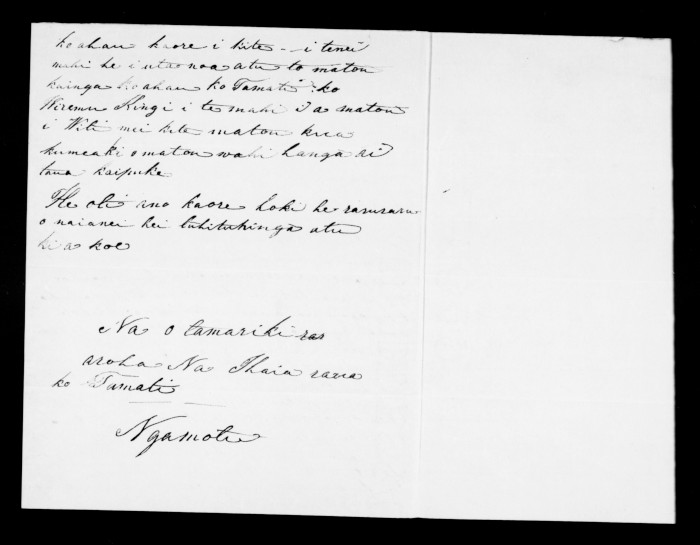 ko ahau kaore i kite - i tenei
mahi he i utaonoa atu to matou
kainga ko ahau ko Tamati ko
Wiremu Kingi i te mahi a matou
i Witi mei kite matou kua
kumeaki o matou wahi hanga ai
taua kaipuke
He oti ano kaore hoki he raruraru
o naianei hei tuhituhinga atu
ki a koe
Na o tamariki
aroha Na Ihaia raua
ko Tamati
Ngamotu